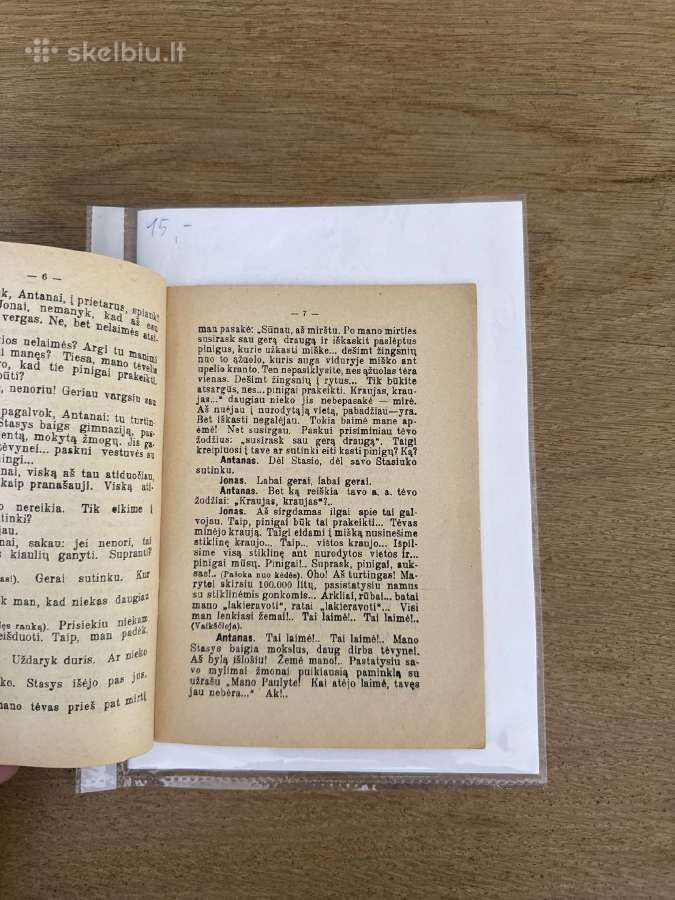 skelbiu.lt
15,-
— 6 —
k, Antanai, į prietarus, spiauk!
Jonai, nemanyk, kad aš esu
vergas. Ne, bet nelaimės atsi-
ios nelaimės? Argi tu manimi
i manęs? Tiesa, mano tėvelis
vo, kad tie pinigai prakeikti,
būti?
, nenoriu! Geriau vargsiu sau
pagalvok, Antanai: tu turtin-
Stasys baigs gimnaziją, pas-
entą, mokytą žmogų. Jis ga-
dvarelį... paskui vestuvės su
pingi...
nai, viską aš tau atiduočiau,
kaip pranašauji. Viską ati-
o nereikia. Tik eikime i
utinki?
jau.
nai, sakau: jei nenori, tai
s kiaulių ganyti. Supranti?
asi). Gerai sutinku. Kur
ok man, kad niekas daugiau
lęs ranką). Prisiekiu niekam
eišduoti. Taip, man padėk,
Uždaryk duris. Ar nieko
ko. Stasys išėjo pas jus.
mano tėvas prieš pat mirtį
— 7 —
man pasakė: „Sūnau, aš mirštu. Po mano mirties
susirask sau gerą draugą ir iškaskit paslėptus
pinigus, kurie užkasti miške... dešimt žingsnių
nuo to ąžuolo, kuris auga viduryje miško ant
upelio kranto. Ten nepasiklysite, nes ąžuolas tėra
vienas. Dešimt žingsnių į rytus... Tik būkite
atsargūs, nes... pinigai prakeikti. Kraujas, krau-
jas...“ daugiau nieko jis nebepasakė — mirė.
Aš nuėjau į nurodytąją vietą, pabadžiau—yra.
Bet iškasti negalėjau. Tokia baimė mane ap-
ėmė! Net susirgau. Paskui prisiminiau tėvo
žodžius: „susirask sau gerą draugą“. Taigi
kreipiuosi į tave ar sutinki eiti kasti pinigų? Ką?
Antanas. Dėl Stasio, dėl savo Stasiuko
sutinku.
Jonas. Labai gerai, labai gerai.
Antanas. Bet ką reiškia tavo a. a. tėvo
žodžiai: „Kraujas, kraujas“?..
Jonas. Aš sirgdamas ilgai apie tai gal-
vojau. Taip, pinigai būk tai prakeikti... Tėvas
minėjo kraują. Taigi eidami į mišką nusinešime
stiklinę kraujo... Taip... vištos kraujo... Išpil-
sime visą stiklinę ant nurodytos vietos ir...
pinigai mūsų. Pinigai!.. Suprask, pinigai, auk-
sas!.. (Pašoka nuo kėdės). Oho! Aš turtingas! Ma-
rytei skirsiu 100.000 litų, pasistatysiu namus
su stiklinėmis gonkomis... Arkliai, rūbai... batai
mano „lakieravoti“, ratai „lakieravoti“... Visi
man lenkiasi žemai!.. Tai laimė!.. Tai laimė!..
(Vaikščioja).
Antanas. Tai laimė!.. Tai laimė!.. Mano
Stasys baigia mokslus, daug dirba tėvynei.
Aš bylą išlošiu! Žemė mano!.. Pastatysiu sa-
vo mylimai žmonai puikiausią paminklą su
užrašu „Mano Paulyte! Kai atėjo laimė, tavęs
jau nebėra...“ Ak!..